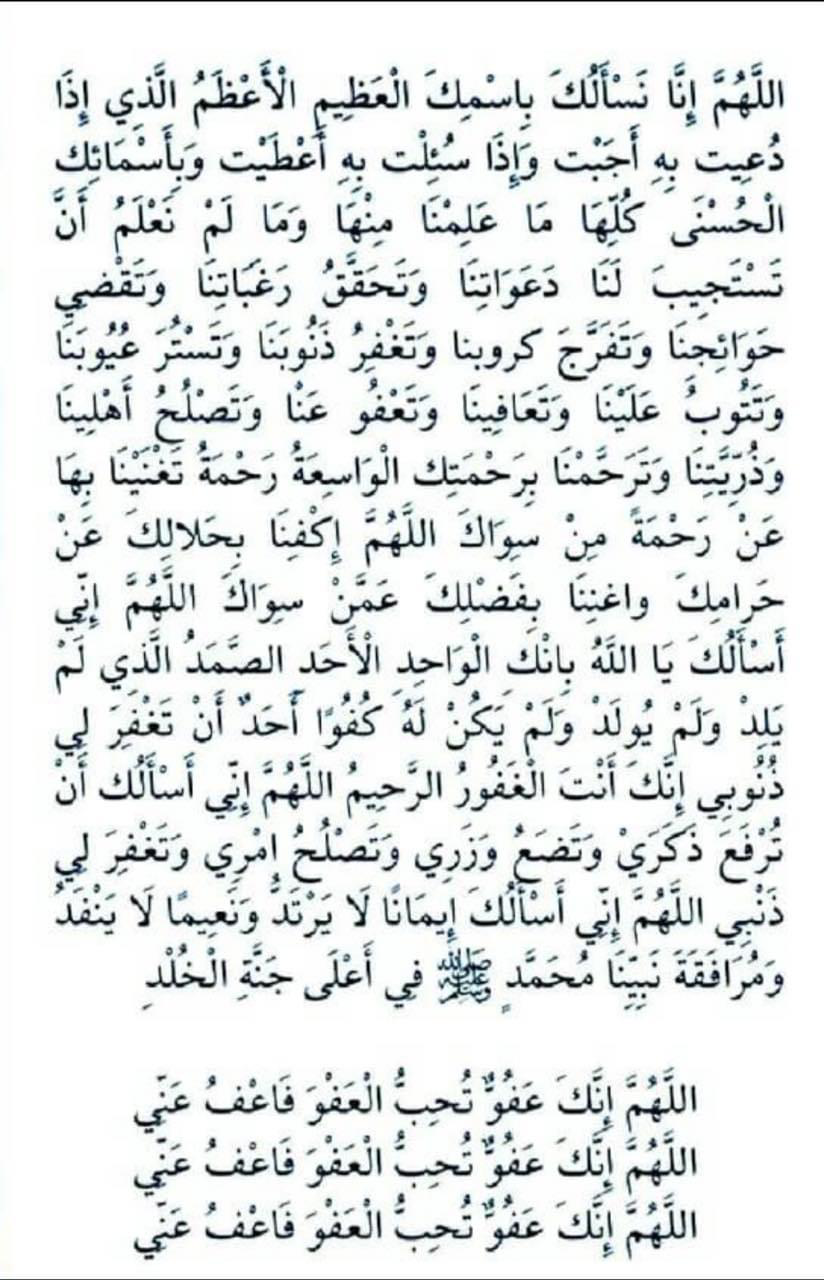 اللَّهُمَّ إِنَّا نَسْأَلُكَ بِاسْمِكَ الْعَظِيمِ الْأَعْظَمُ الَّذِي إِذَا
دُعِيت بِهِ أَجَبْت وَإِذَا سُئِلْت بِهِ أَعْطَيْت وَبِأَسْمَائِك
الْحُسْنَى كُلِّهَا مَا عَلِمْنَا مِنْهَا وَمَا لَمْ نَعْلَمُ أَنَّ
تَسْتَجِيبَ لَنَا دَعَوَاتِنَا وَتَحَقَّقُ رَغَبَاتِنَا وَتَقْضِي
حَوَائِجِنَا وَتَفَرَّجَ كروبنا وَتَغْفِرُ ذَنُوبَنَا وَتَسْتُرَ عُيُوبَنَا
وَتَتُوبُ عَلَيْنَا وَتَعَافِينَا وَتَعْفُو عَنْا وَتَصْلُحُ أَهْلِينَا
وَذُرِّيَّتِنَا وَتَرَحَّمْنَا بِرَحْمَتِك الْوَاسِعَةُ رَحْمَةُ تَغْنَيْنَا بِهَا
عَنْ رَحْمَةً مِنْ سِوَاكَ اللَّهُمَّ إِكْفِنَا بِحَلالِكَ عَنْ
حَرامِكَ واغنِنَا بِفَضْلِكَ عَمَّنْ سِوَاكَ اللَّهُمَّ إِنِّي
أَسْأَلُكَ يَا اللَّهُ بِانْك الْوَاحِدِ الْأَحَدِ الصَّمَدُ الَّذِي لَمْ
يَلِدْ وَلَمْ يُولَدْ وَلَمْ يَكُنْ لَهُ كُفُوًا أَحَدٌ أَنْ تَغْفِرَ لِي
ذُنُوبِي إِنَّكَ أَنْتَ الْغَفُورُ الرَّحِيمُ اللَّهُمَّ إِنِّي أَسْأَلُك أَنْ
تُرْفَعَ ذَكَرَيْ وَتَضَعُ وَزَرِي وَتَصْلُحُ امْرِي وَتَغْفِرَ لِي
ذَنْبِي اللَّهُمَّ إِنِّي أَسْأَلُكَ إِيمَانًا لَا يَرْتَدُّ وَنَعِيمًا لَا يَنْفَدُ
وَمُرَافَقَةَ نَبِيِّنَا مُحَمَّدٍ ﷺ فِي أَعْلَى جَنَّةِ الْخُلْدِ
اللَّهُمَّ إِنَّكَ عَفُوٌّ تُحِبُّ الْعَفْوَ فَاعْفُ عَنِّي
اللَّهُمَّ إِنَّكَ عَفُوٌّ تُحِبُّ الْعَفْوَ فَاعْفُ عَنِّي
اللَّهُمَّ إِنَّكَ عَفُوٌّ تُحِبُّ الْعَفْوَ فَاعْفُ عَنِّي